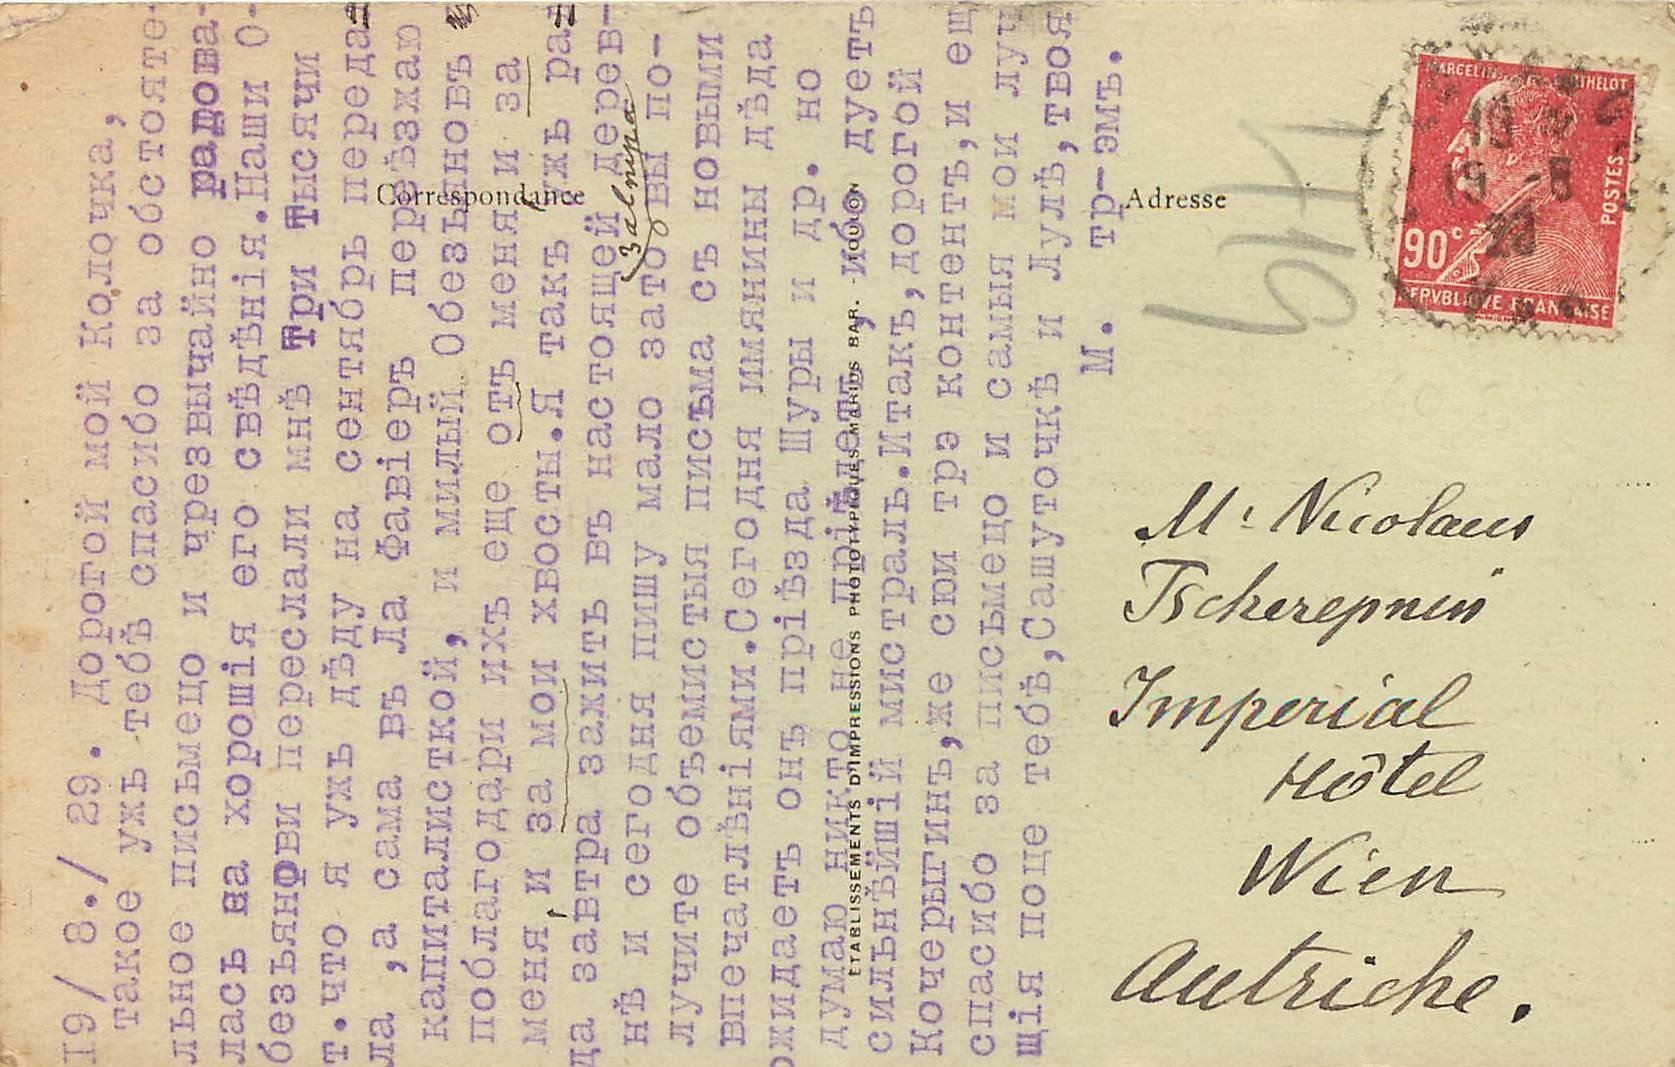 19/ 8./ 29. Дорогой мой Колочка,
такое ужъ тебѣ спасибо за обстояте-
льное письмецо и чрезвычайно радова-
лась на хорошія его свѣдѣнія.Наши О-
безьянови переслали мнѣ Три Тысячи
т.что я ужъ дѣду на сентябрь переда=
ла ,а сама въ Ла Фавіеръ переѣзжаю
капиталисткой, и милый Обезьяновъ
поблагодари ихъ еще отъ меня и за
меня,и за мои хвосты.Я такъ ужъ ра=
да завтра зажить въ настоящей дерев-
нѣ и сегодня пишу мало зато вы по-
завтра
лучите объемистыя письма съ новыми
впечатлѣніями.Сегодня имянины дѣда
ожидаетъ онъ пріѣзда Шуры и др. но
думаю никто не пріѣдетъ ,ибо дуетъ
сильнѣйшій мистраль.Итакъ,дорогой
Кочерыгинъ,же сюи трэ контентъ,и ещ
спасибо за письмецо и самыя мои луч
щія поце тебѣ,Сашуточкѣ и Лулѣ,твоя
М. тр-эмъ.
Correspondance
Adresse
ÉTABLISSEMENTS D'IMPRESSIONS PHOTOTYPIQUES MARIUS BAR. - TOULON
MARCELIN BERTHELOT
POSTES
90c
REPVBLIQVE FRANÇAISE
Mr Nicolaus
Tscherepnin
Imperial
Hôtel
Wien
Autriche.